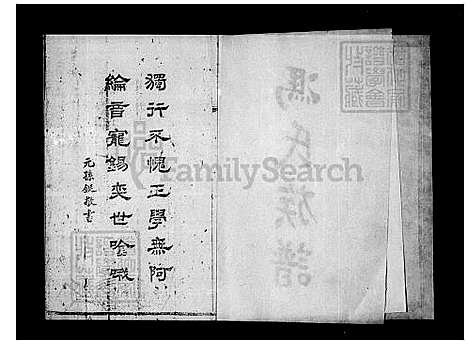 馮氏族譜
獨行不愧正學無阿
綸音寵錫奕世唫哦
元孫銳敬書
FamilySearch